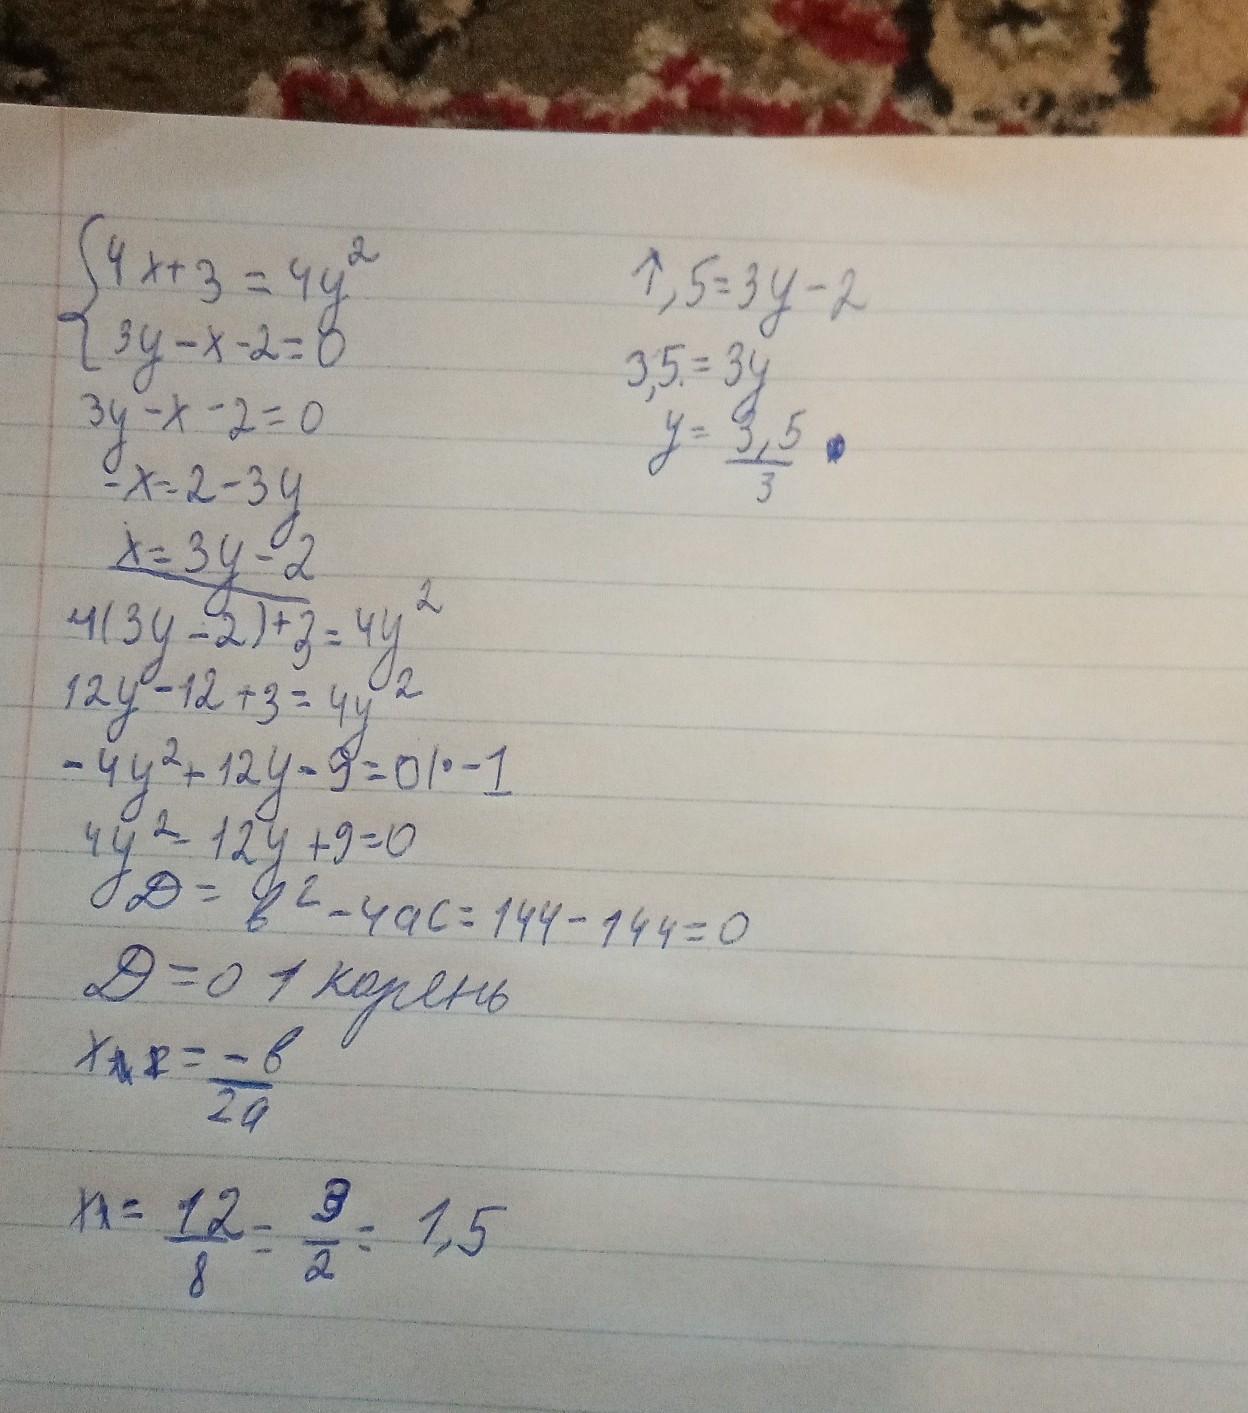 {4x+3=4y²
{3y-x-2=0
3y-x-2=0
-x=2-3y
x=3y-2
4(3y-2)+3=4y²
12y-12+3=4y²
-4y²+12y-9=0|·-1
4y²-12y+9=0
D=b²-4ac=144-144=0
D=0 1 корень
x = -b/2a
x₁ = 12/8 = 3/2 = 1,5
1,5=3y-2
3,5=3y
y=3,5/3